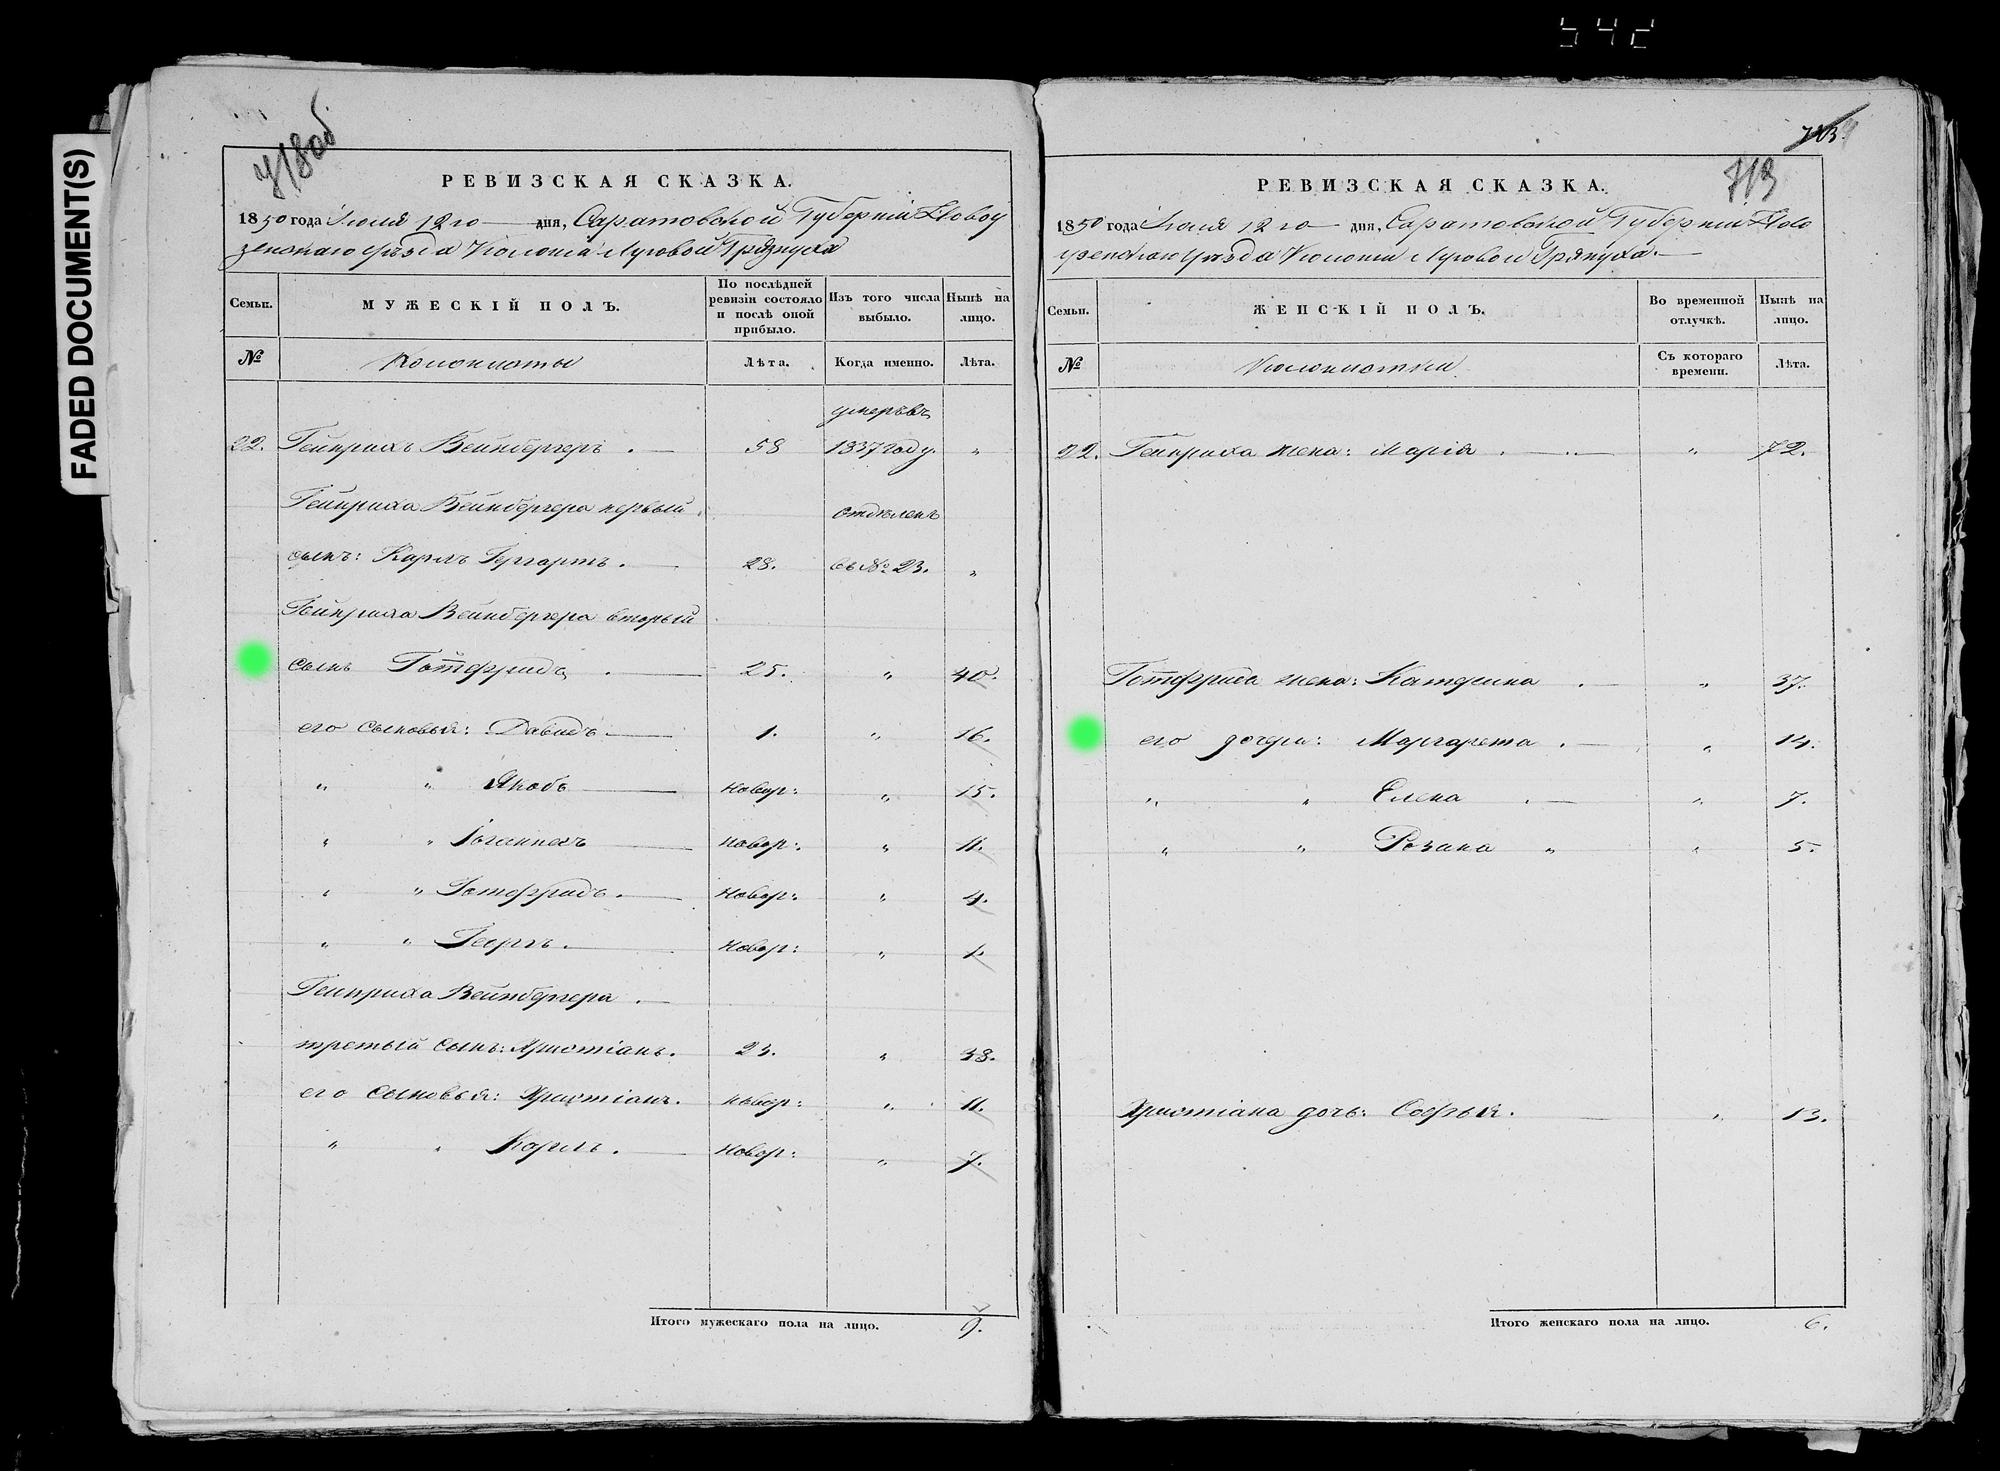 542
FADED DOCUMENT(S)
718об
РЕВИЗСКАЯ СКАЗКА.
1850 года Іюля 12 го дня, Саратовской Губерніи Новоу
зенскаго уѣзда Колоніи Луговой Грязнухи
Семьи.
МУЖЕСКІЙ ПОЛЪ.
По послѣдней ревизіи состояло и послѣ оной прибыло.
Изъ того числа выбыло.
Нынѣ на лицо.
№
Колонисты
Лѣта.
Когда именно.
Лѣта.
умеръ въ
22. Гейнрихъ Вейнбергеръ. 58 1837 году. „
Гейнриха Вейнбергера первый отдѣленъ
сынъ: Карлъ Гергартъ. 28. въ № 23. „
Гейнриха Вейнбергера вторый
сынъ Готфридъ. 25. „ 40.
его сыновья: Давидъ 1. „ 16.
„ „ Якобъ новор: „ 15.
„ „ Іоганнесъ новор: „ 11.
„ „ Готфридъ. новор: „ 4.
„ „ Георгъ. новор: „ 1.
Гейнриха Вейнбергера.
третьій сынъ: Христіанъ. 23. „ 38.
его сыновья: Христіанъ. новор: „ 11.
„ „ Карлъ. новор: „ 7.
Итого мужескаго пола на лицо. 9.
713
713
РЕВИЗСКАЯ СКАЗКА.
1850 года Іюля 12 го дня, Саратовской Губерніи Ново
узенскаго уѣзда Колоніи Луговой Грязнухи.
Семьи.
ЖЕНСКІЙ ПОЛЪ.
Во временной отлучкѣ.
Нынѣ на лицо.
№
Колонистки
Съ котораго времени.
Лѣта.
22. Гейнриха жена: Марія. „ 72.
Готфрида жена: Катерина. „ 37.
его дочери: Маргарета. „ 14.
„ „ Елена. „ 7.
„ „ Розина „ „ 5.
Христіана дочь: Софья. „ 13.
Итого женскаго пола на лицо. 6.